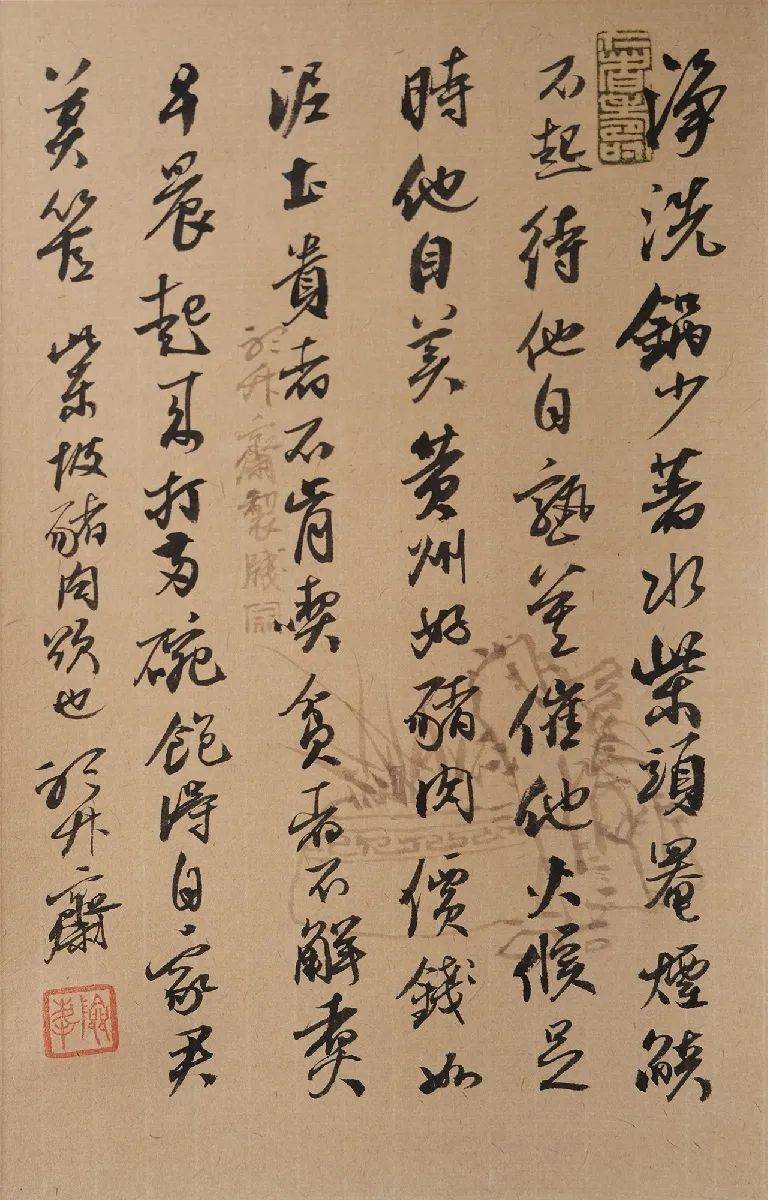 淨洗鍋少著水柴頭罨煙燄
不起待他自熟莫催他火候足
時他自美黃州好豬肉價錢如
泥土貴者不肯喫貧者不解煮
早晨起來打兩碗飽得自家君
莫管 此東坡豬肉頌也 於升齋
於升齋製牋